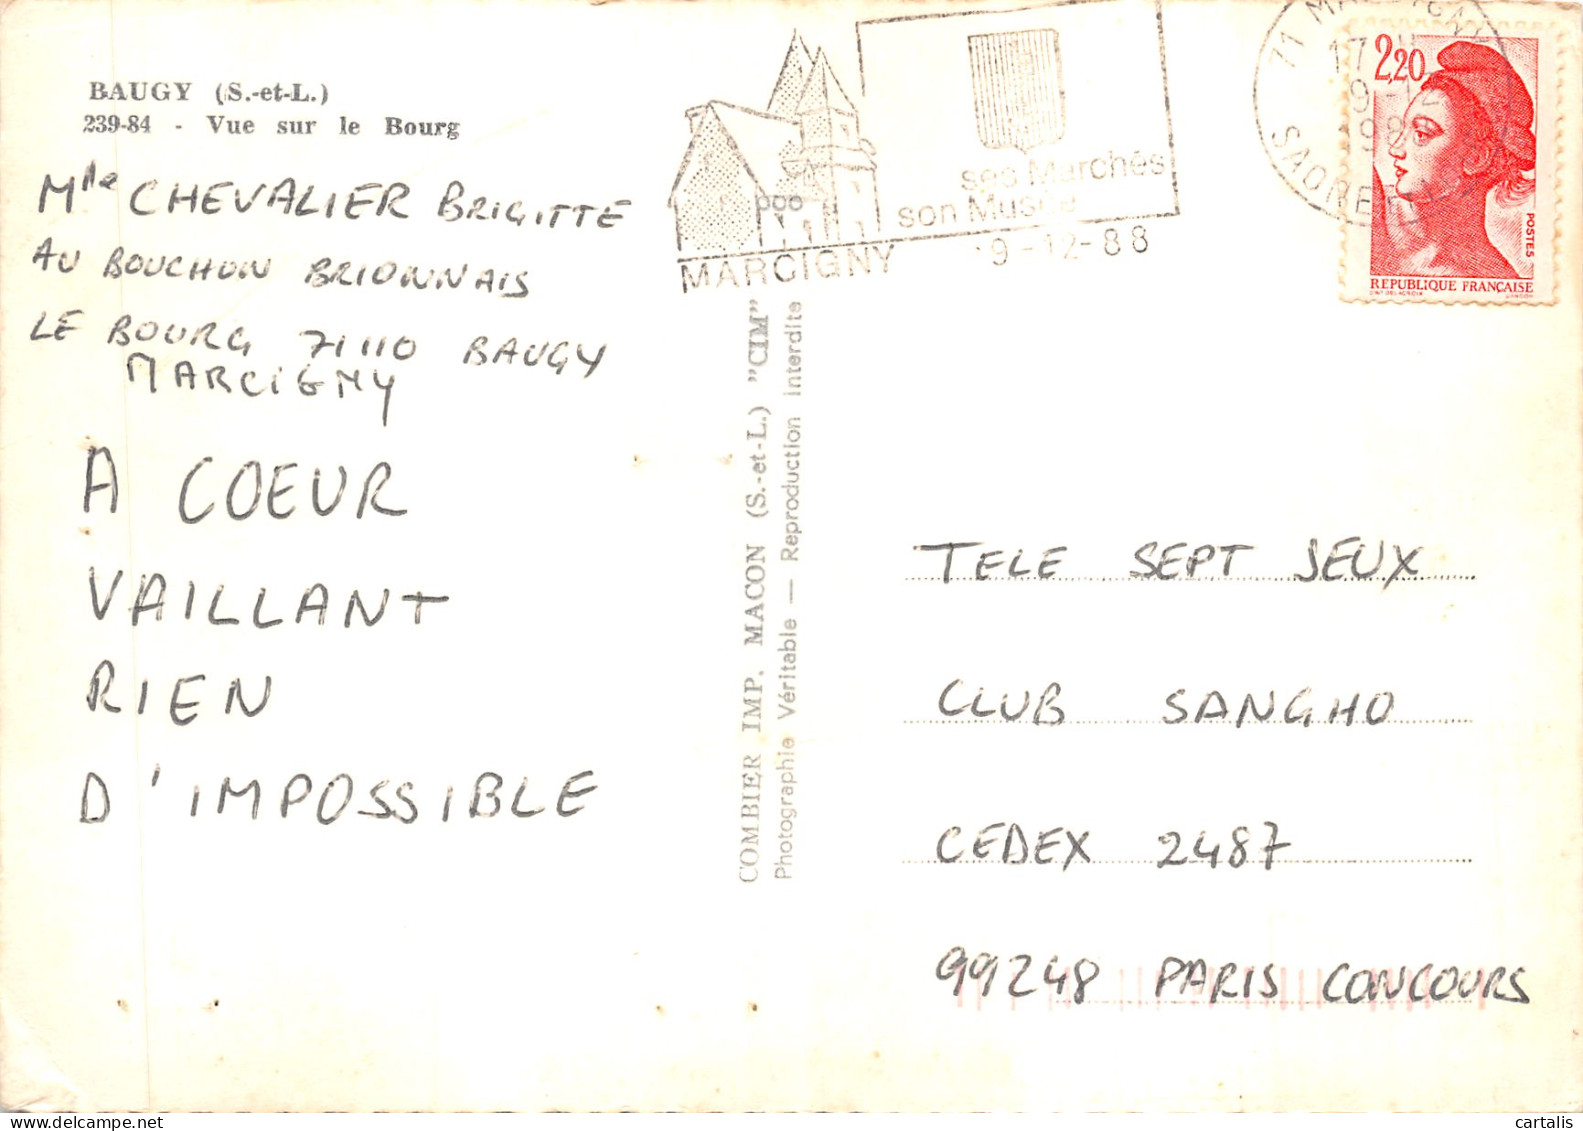 BAUGY (S.-et-L.)
239-84 - Vue sur le Bourg
Mlle CHEVALIER BRIGITTE
AU BOUCHON BRIONNAIS
LE BOURG 71110 BAUGY
MARCIGNY
A COEUR
VAILLANT
RIEN
D'IMPOSSIBLE
COMBIER IMP. MACON (S.-et-L.) "CIM"
Photographie Véritable — Reproduction interdite
ses Marchés
son Musée
MARCIGNY 9-12-88
71
17
SAONE
2,20
POSTES
REPUBLIQUE FRANÇAISE
TELE SEPT JEUX
CLUB SANGHO
CEDEX 2487
99248 PARIS CONCOURS
cartalis